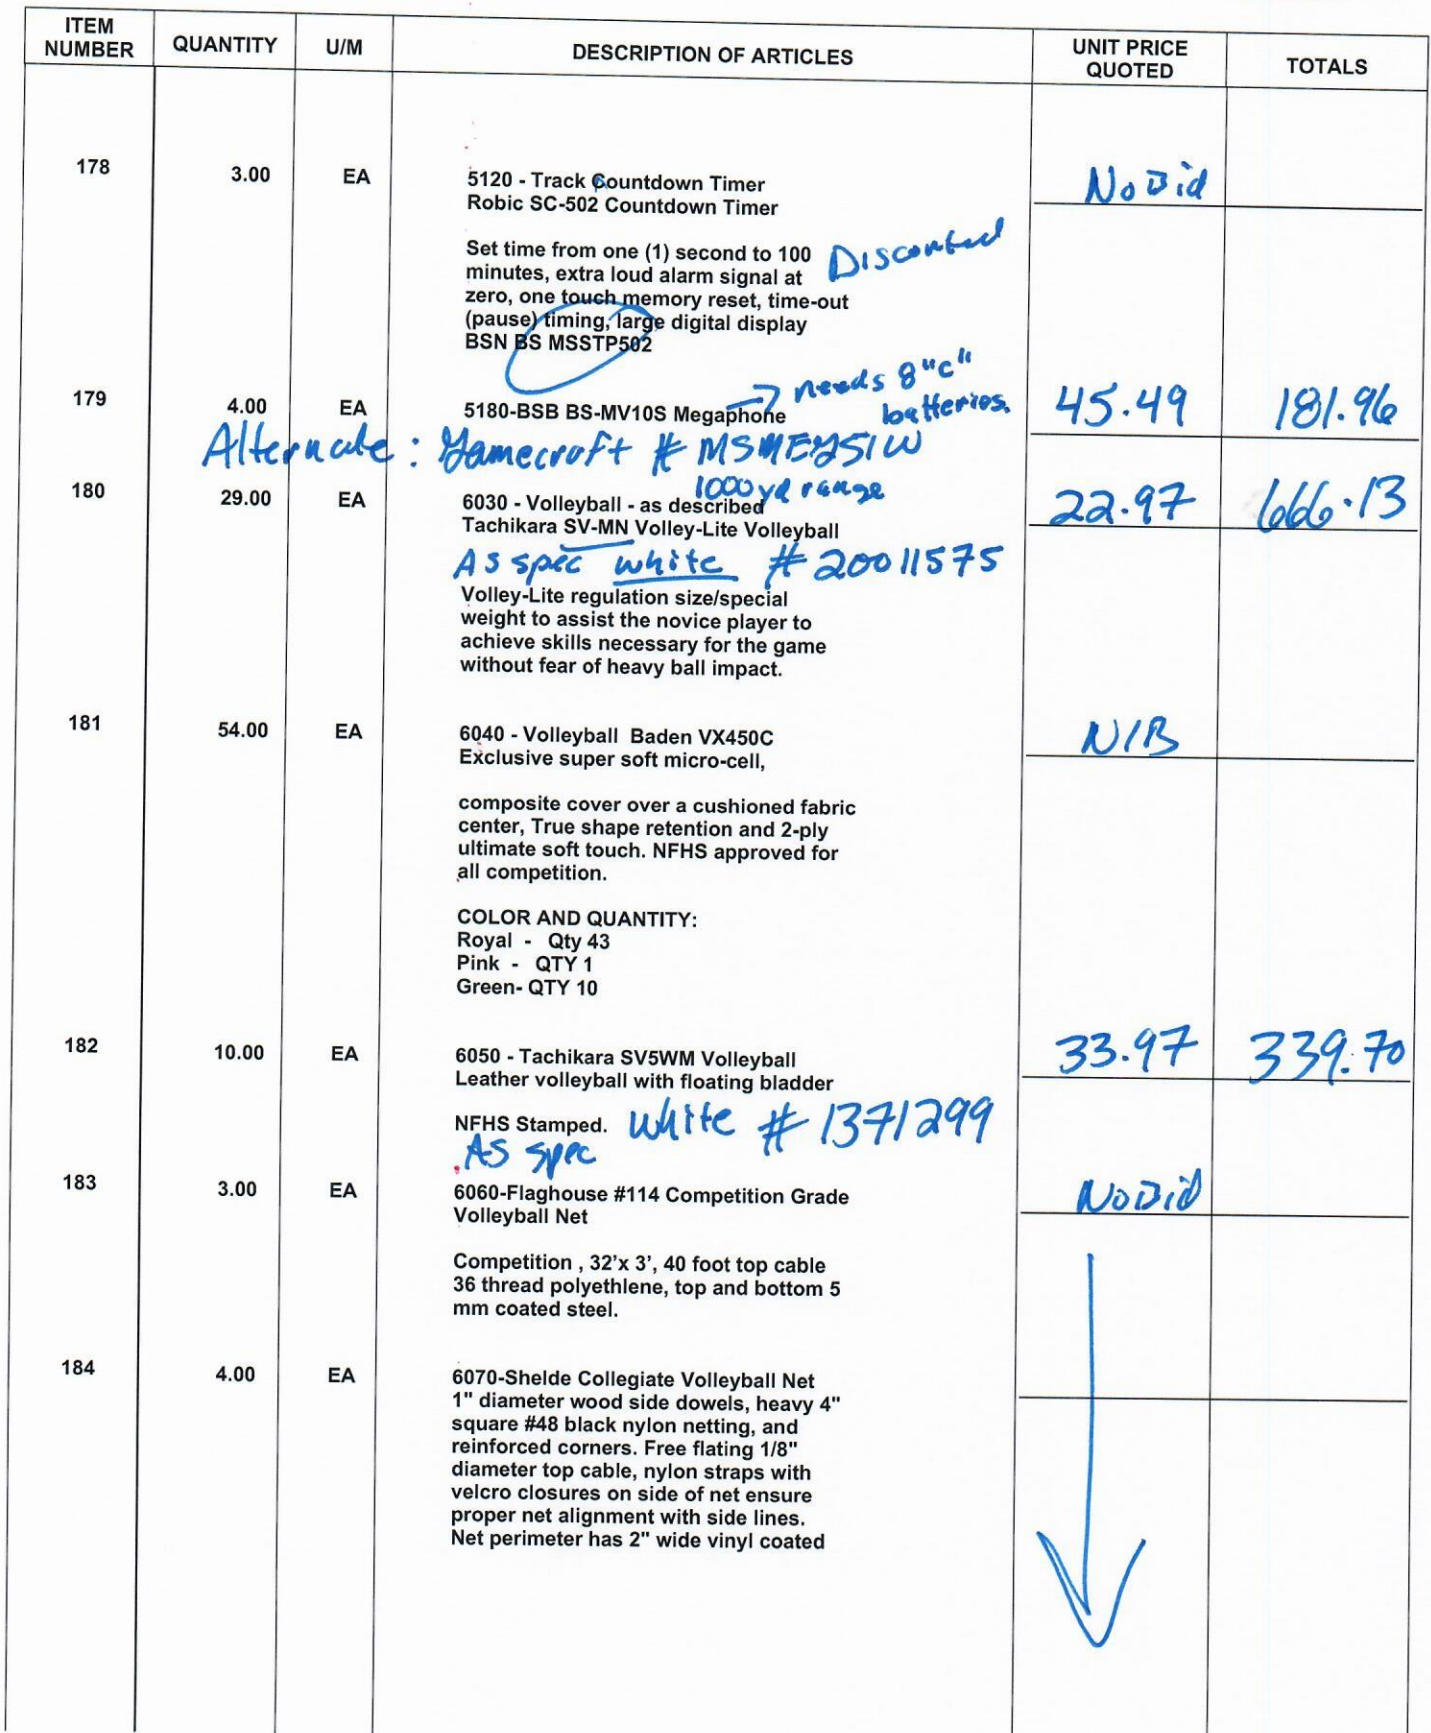 ITEM NUMBER QUANTITY U/M DESCRIPTION OF ARTICLES UNIT PRICE QUOTED TOTALS
178 3.00 EA 5120 - Track Countdown Timer No Bid
Robic SC-502 Countdown Timer
Set time from one (1) second to 100
minutes, extra loud alarm signal at
zero, one touch memory reset, time-out
(pause) timing, large digital display
BSN BS MSSTP502
needs 8 "c"
batteries.
179 4.00 EA 5180-BSB BS-MV10S Megaphone 45.49 181.96
Alternate: Gamecraft #
1000 yd range
180 29.00 EA 6030 - Volleyball - as described 22.97 666.13
Tachikara SV-MN Volley-Lite Volleyball
As spec white # 20011575
Volley-Lite regulation size/special
weight to assist the novice player to
achieve skills necessary for the game
without fear of heavy ball impact.
181 54.00 EA 6040 - Volleyball Baden VX450C N/B
Exclusive super soft micro-cell,
composite cover over a cushioned fabric
center, True shape retention and 2-ply
ultimate soft touch. NFHS approved for
all competition.
COLOR AND QUANTITY:
Royal - Qty 43
Pink - QTY 1
Green- QTY 10
182 10.00 EA 6050 - Tachikara SV5WM Volleyball 33.97 339.70
Leather volleyball with floating bladder
NFHS Stamped. White # 1371299
As spec
183 3.00 EA 6060-Flaghouse #114 Competition Grade No Bid
Volleyball Net
Competition , 32'x 3', 40 foot top cable
36 thread polyethlene, top and bottom 5
mm coated steel.
184 4.00 EA 6070-Shelde Collegiate Volleyball Net
1" diameter wood side dowels, heavy 4"
square #48 black nylon netting, and
reinforced corners. Free flating 1/8"
diameter top cable, nylon straps with
velcro closures on side of net ensure
proper net alignment with side lines.
Net perimeter has 2" wide vinyl coated